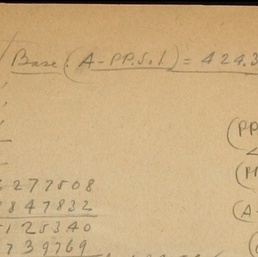 Base (A-PP.S.1) = 424.3
(PP
(P
6277508
(A-
2847832
5125340
739769